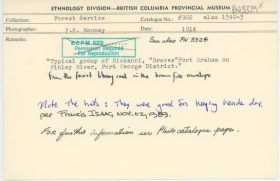 ETHNOLOGY DIVISION—BRITISH COLUMBIA PROVINCIAL MUSEUM PN3324
Collection: Forest Service Catalogue No.: #902 also 1340-3
Photographer: P.S. Bonney Date: 1914
Remarks: See also PN 3328
BCPM NEG
Permission Required
For Reproduction
"Typical group of Sickanni, "Braves" Fort Graham on
Finlay River, Fort George District."
From the forest library card in the brown file envelope
Note the hats: They were good for keeping heads dry.
per Francis ISAAC, NOV. 02, 1983.
For further information see Photo catalogue paper.